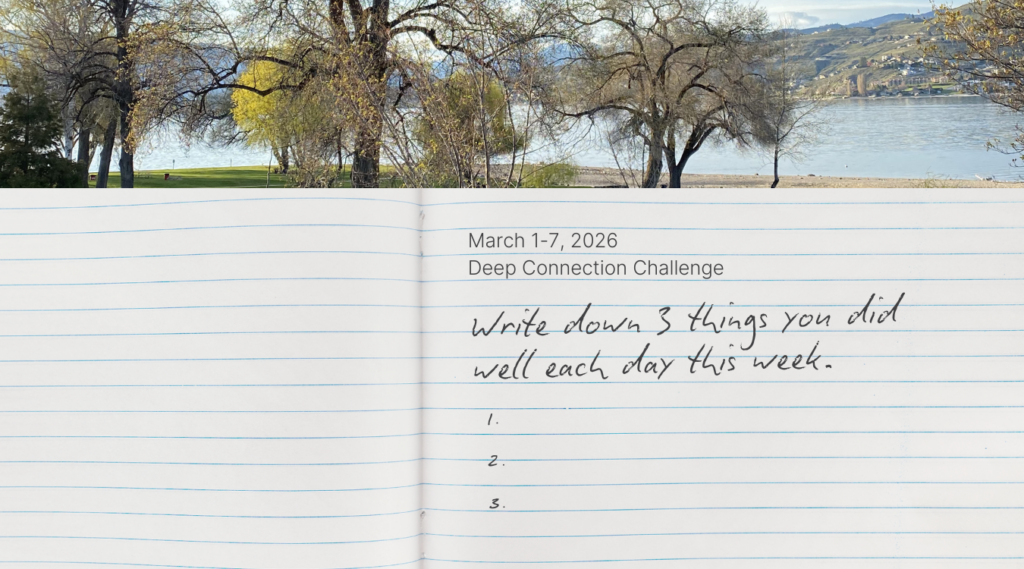 March 1-7, 2026
Deep Connection Challenge
Write down 3 things you did
well each day this week.
1.
2.
3.